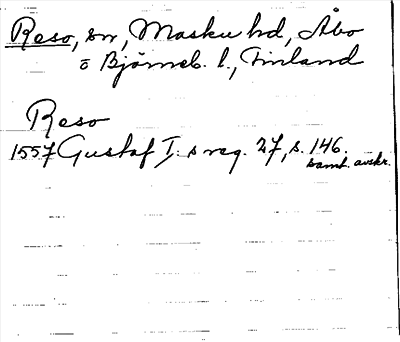 Reso, sn, Masku hd, Åbo
o Björneb. l., Finland
Reso
1557 Gustaf I:s reg. 27, s. 146.
samt. avskr.